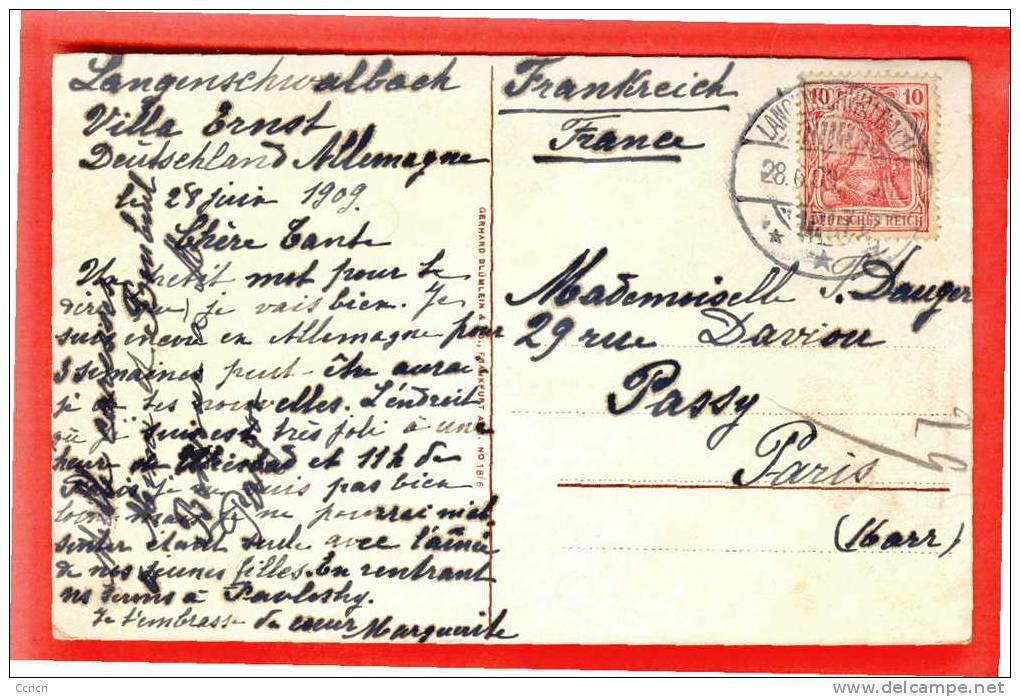 Langenschwalbach
Villa Ernst
Deutschland Allemagne
le 28 juin 1909
Chère Tante
Un petit mot pour te
dire que je vais bien. Je
suis encore en Allemagne pour
3 semaines peut-être aurai
je de tes nouvelles. L'endroit
où je suis est très joli à une
heur de et 11h de
Paris je ne suis pas bien
loin mais je ne pourrai
étant seule avec l'aînée
de nos jeunes filles. En rentrant
ns irons à Pavlosky.
Je t'embrasse de cœur Marguerite
GERHARD BLÜMLEIN & CO., FRANKFURT A. M. NO 18/6
Frankreich
France
10 10
DEUTSCHES REICH
LANGENSCHWALBACH
28.6.09
Mademoiselle F. Dauger
29 rue Daviou
Passy
Paris
(Marr)
Ccricri
delcampe.net